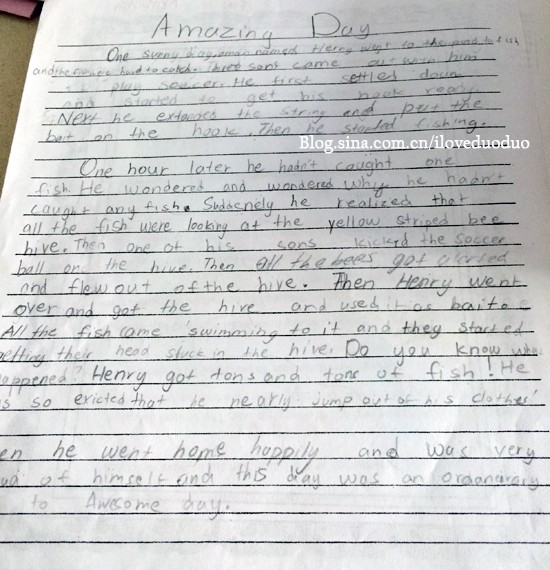 Amazing Day
One sunny day, a man named Henry went to the pond to fish
and the fish were hard to catch. Three sons came out with him
play soccer. He first settled down
and started to get his hook ready
Next he extended the string and put the
bait on the hook. Then he started fishing.
Blog.sina.com.cn/iloveduoduo
One hour later he hadn't caught one
fish. He wondered and wondered why he hadn't
caught any fish. Suddenely he realized that
all the fish were looking at the yellow striped bee
hive. Then one of his sons kickd the soccer
ball on the hive. Then all the bees got alerted
and flew out of the hive. Then Henry went
over and got the hive and used it as bait
All the fish came swimming to it and they started
etting their head stuck in the hive. Do you know wha
appened? Henry got tons and tons of fish! He
s so exricted that he nearly jump out of his clothes!
en he went home happily and was very
ud of himself and this day was an ordanarary
to Awesome day.